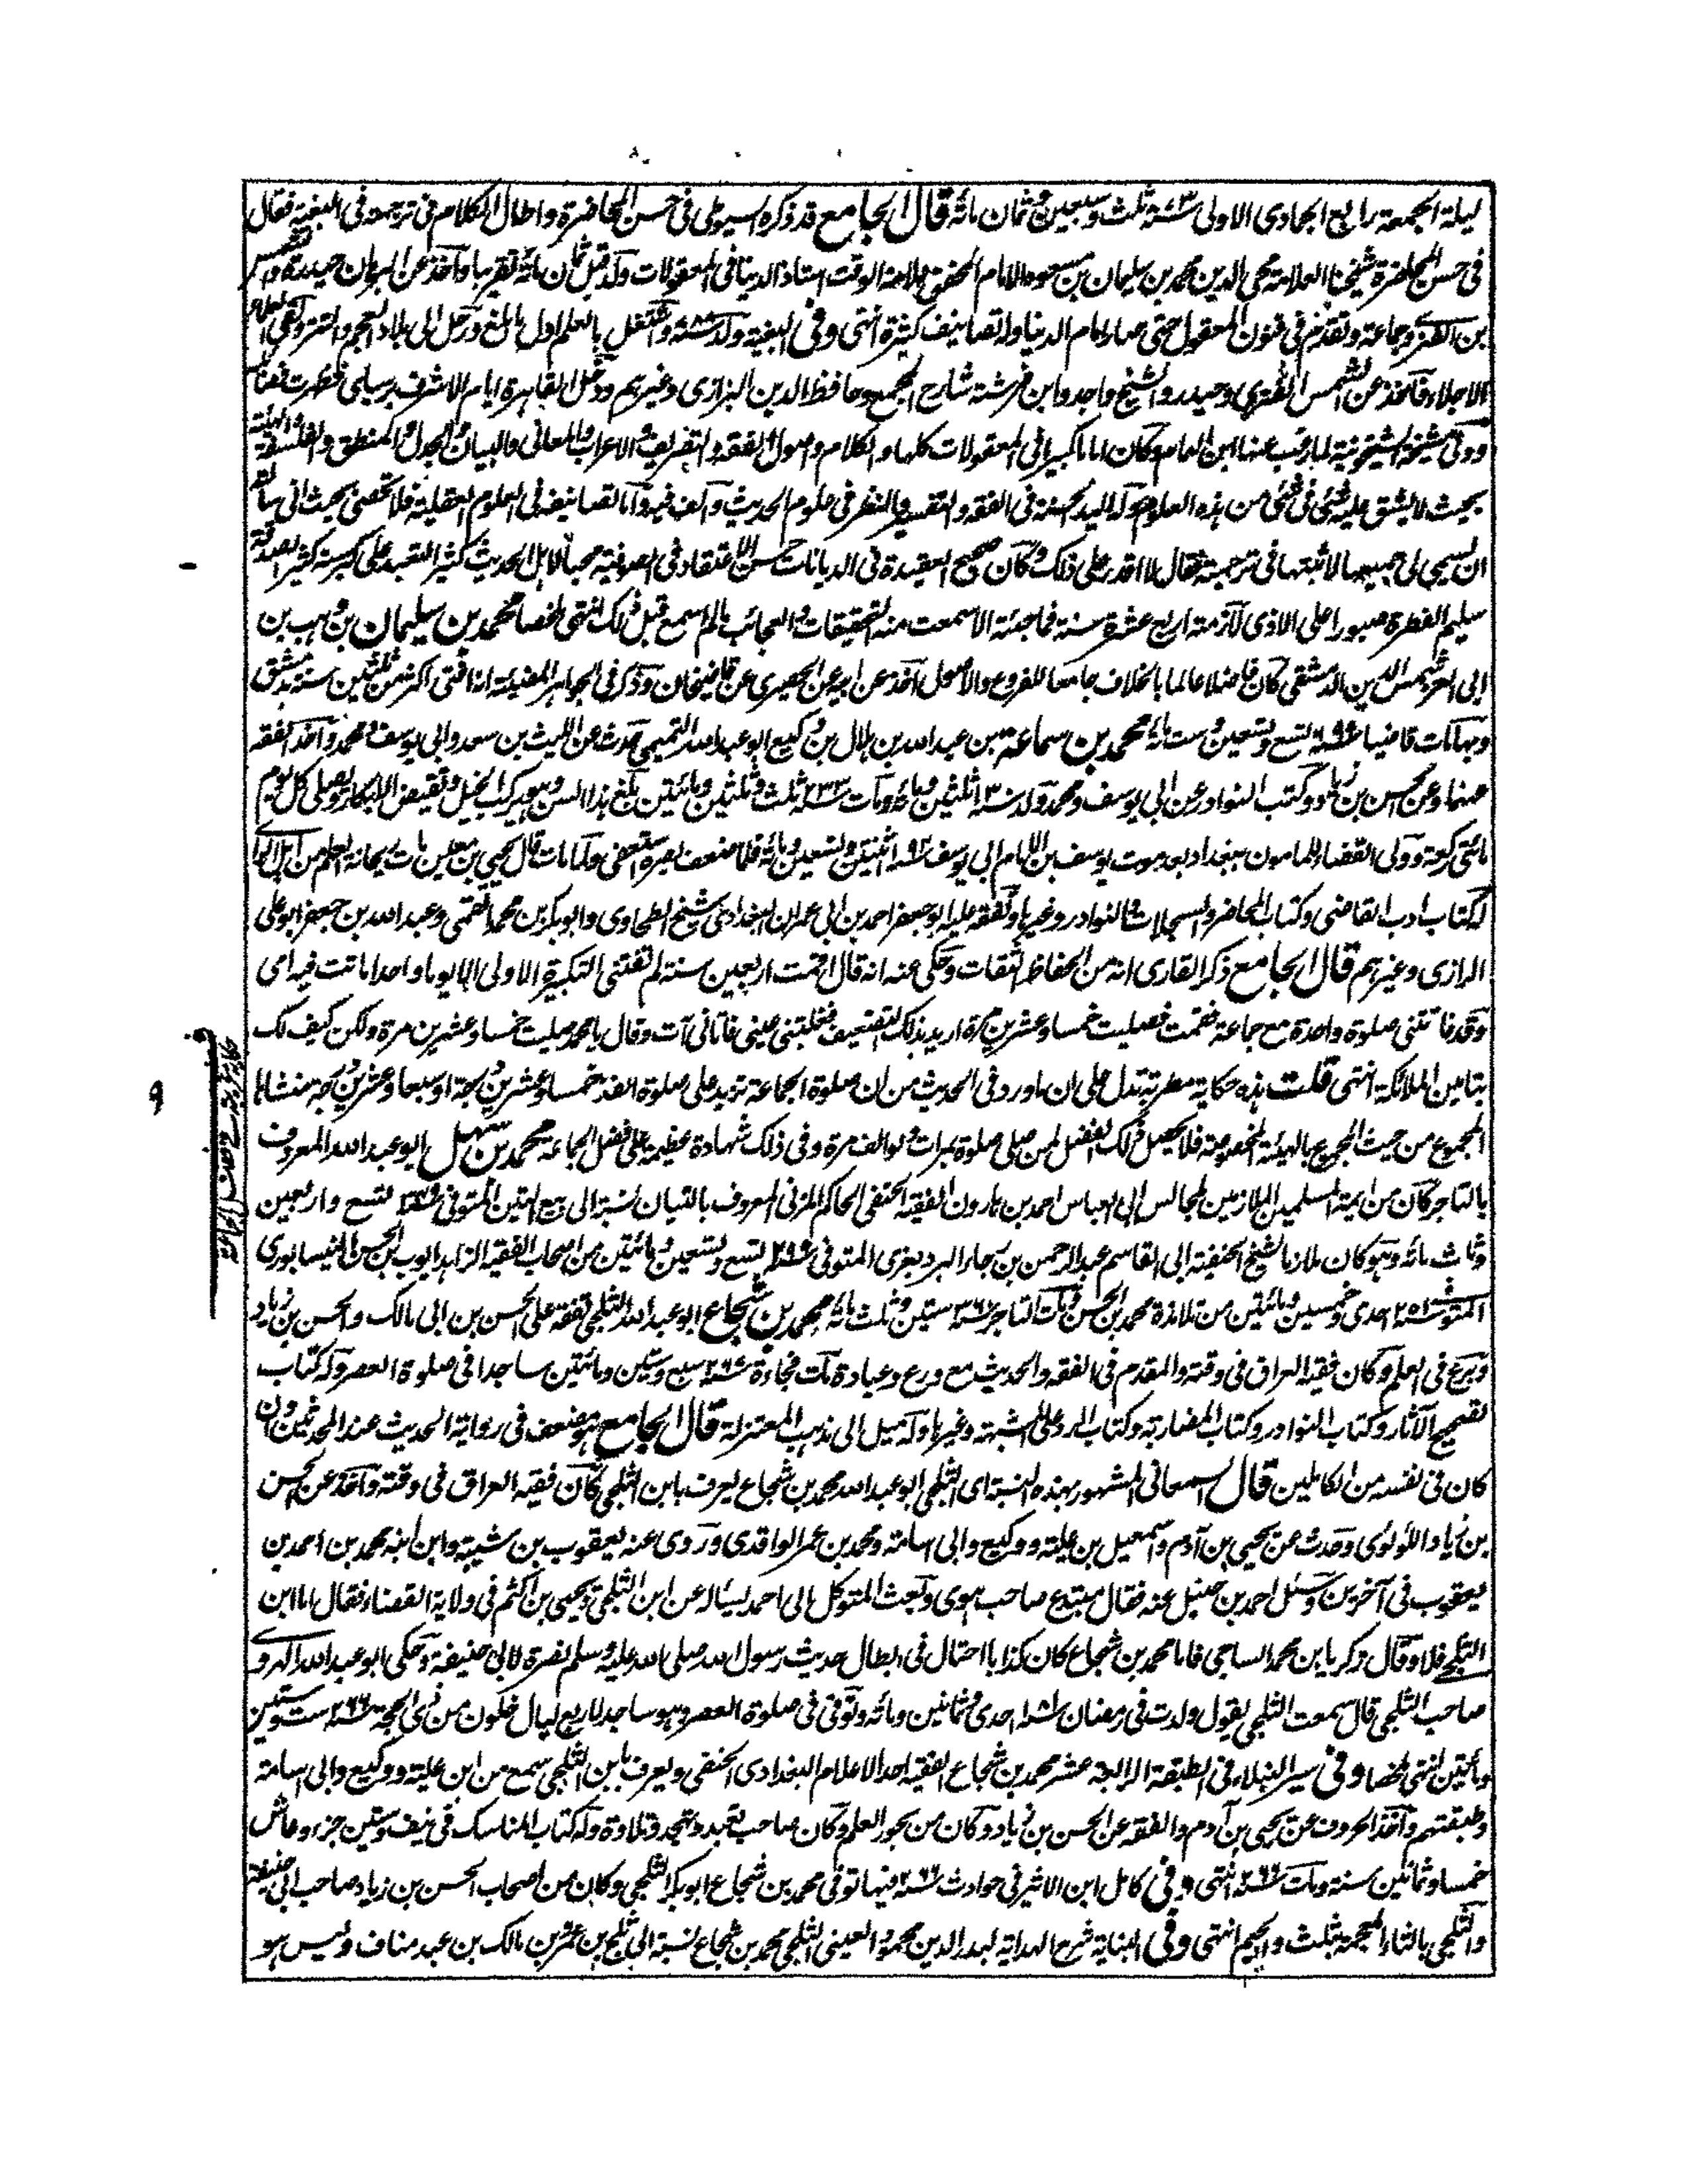 ليلة الجمعة رابع الجمادى الاولى سنة ٨٧٣ ثلث وسبعين وثمان مائة قال الجامع قد ذكره السيوطى فى حسن المحاضرة واطال الكلام فى ترجمته فى البغية فقال
فى حسن المحاضرة شيخنا العلامة محى الدين محمد بن سليمان بن مسعود الامام المحقق علامة الوقت استاذ الدنيا فى المعقولات ولد قبل ثمان مائة تقريبا واخذ عن البرهان حيدرة وشمس
بن الفنرى وجماعة وتقدم فى فنون المعقول حتى صار امام الدنيا وله تصانيف كثيرة انتهى وفى البغية ولد سنة ٧٨٨ واشتغل بالعلم اول ما بلغ ورحل الى بلاد العجم والتتر ولقى العلماء
الاجلاء فاخذ عن الشمس الفنرى وحيدر والشيخ واجد وابن فرشته شارح المجمع وحافظ الدين البزازى وغيرهم ودخل القاهرة ايام الاشرف برسباى فظهرت فضائله
وولى مشيخة الشيخونية لما رغب عنها ابن الهمام وكان اماما كبيرا فى المعقولات كلها والكلام واصول الفقه والتصريف والاعراب والمعانى والبيان والجدل والمنطق والفلسفة والهيئة
بحيث لا يشق عليه شئ فى شئ من هذه العلوم وله اليد الحسنة فى الفقه والتفسير والنظر فى علوم الحديث والف فيه واما تصانيفه فى العلوم العقلية فلا تحصى بحيث انى سألته
ان يسمى لى جميعها لاثبتها فى ترجمته فقال لا اقدر على ذلك وكان صحيح العقيدة فى الديانات حسن الاعتقاد فى الصوفية محبا لاهل الحديث كثير التعبد على كبر سنه كثير الصدقة
سليم الفطرة صبورا على الاذى لازمته اربع عشرة سنة فما جئته الا سمعت منه التحقيقات والعجائب ما لم اسمع قبل ذلك انتهى ملخصا محمد بن سليمان بن وهب بن
ابى العز شمس الدين الدمشقى كان فاضلا عالما بالخلاف جامعا للفروع والاصول اخذ عن ابيه عن الحصيرى عن قاضيخان وذكر فى الجواهر المضيئة انه افتى اكثر من ثلثين سنة بدمشق
وبها مات قاضيا سنة ٦٩٩ تسع وتسعين وست مائة محمد بن سماعة بن عبد الله بن هلال بن وكيع ابو عبد الله التميمى حدث عن الليث بن سعد وابى يوسف ومحمد واخذ الفقه
عنهما وعن الحسن بن زياد وكتب النوادر عن ابى يوسف ومحمد ولد سنة ١٣٠ ثلثين ومائة ومات سنة ٢٣٣ ثلث وثلثين ومائتين بلغ هذا السن وهو يركب الخيل ويقتض الابكار ويصلى كل يوم
مائتى ركعة وولى القضاء للمامون ببغداد بعد موت يوسف بن الامام ابى يوسف سنة ١٩٢ اثنتين وتسعين ومائة فلما ضعف بصره استعفى ولما مات قال يحيى بن معين مات ريحانة العلم من اهل الراى
له كتاب ادب القاضى وكتاب المحاضر والسجلات والنوادر وغيرها وتفقه عليه ابو جعفر احمد بن ابى عمران البغدادى شيخ الطحاوى وابو بكر بن محمد القمى وعبد الله بن جعفر ابو على
الرازى وغيرهم قال الجامع ذكر القارى انه من الحفاظ الثقات وحكى عنه انه قال اقمت اربعين سنة لم تفتنى التكبيرة الاولى الا يوما واحدا ماتت فيه امى
وقد فاتتنى صلوة واحدة مع جماعة فقمت فصليت خمسا وعشرين مرة اريد بذلك التضعيف فغلبتنى عينى فاتانى آت وقال يا محمد صليت خمسا وعشرين مرة ولكن كيف لك
بتامين الملائكة انتهى قلت هذه حكاية مطربة تدل على ان ما ورد فى الحديث من ان صلوة الجماعة تزيد على صلوة الفذ خمسا وعشرين درجة او سبعا وعشرين درجة منشاه
المجموع من حيث المجموع بالهيئة المخصوصة فلا يحصل ذلك الفضل لمن صلى صلوة بمرات ولو الف مرة وفى ذلك شهادة عظيمة على فضل الجماعة محمد بن سهل ابو عبد الله المعروف
بالتاجر كان من ايمة المسلمين الملازمين لمجالس ابى العباس احمد بن هارون الفقيه الحنفى الحاكم المزنى المعروف بالتبان نسبة الى بيع التبن المتوفى سنة ٣٤٩ تسع واربعين
وثلث مائة وهو كان ملازما لشيخ الحنفية ابى القاسم عبد الرحمن بن رجاء البرديغرى المتوفى سنة ٢٩٩ تسع وتسعين ومائتين من اصحاب الفقيه الزاهد ايوب بن الحسن النيسابورى
المتوفى سنة ٢٥١ احدى وخمسين ومائتين من تلامذة محمد بن الحسن ومات التاجر سنة ٣٦٠ ستين وثلث مائة محمد بن شجاع ابو عبد الله الثلجى تفقه على الحسن بن ابى مالك والحسن بن زياد
وبرع فى العلم وكان فقيه العراق فى وقته والمقدم فى الفقه والحديث مع ورع وعبادة مات فجاءة سنة ٢٦٧ سبع وستين ومائتين ساجدا فى صلوة العصر وله كتاب
تصحيح الآثار وكتاب النوادر وكتاب المضاربة وكتاب الرد على المشبهة وغيرها وله ميل الى مذهب المعتزلة قال الجامع هو ضعف فى رواية الحديث عند المحدثين وان
كان فى نفسه من الكاملين قال السمعانى المشهور بهذه النسبة اى الثلجى ابو عبد الله محمد بن شجاع يعرف بابن الثلجى كان فقيه العراق فى وقته واخذ عن الحسن
بن زياد اللؤلوى وحدث عن يحيى بن آدم واسمعيل بن علية ووكيع وابى اسامة ومحمد بن عمر الواقدى وروى عنه يعقوب بن شيبة وابن ابنه محمد بن احمد بن
يعقوب فى آخرين وسئل احمد بن حنبل عنه فقال مبتدع صاحب هوى وبعث المتوكل الى احمد يساله عن ابن الثلجى ويحيى بن اكثم فى ولاية القضاء فقال اما ابن
الثلجى فلا وقال زكريا بن محمد الساجى فاما محمد بن شجاع كان كذابا احتال فى ابطال حديث رسول الله صلى الله عليه وسلم نصرة لابى حنيفة وحكى ابو عبد الله الهروى
صاحب الثلجى قال سمعت الثلجى يقول ولدت فى رمضان سنة ١٨١ احدى وثمانين ومائة وتوفى فى صلوة العصر وهو ساجد لاربع ليال خلون من ذى الحجة سنة ٢٦٦ ست وستين
ومائتين انتهى ملخصا وفى سير النبلاء فى الطبقة الرابعة عشر محمد بن شجاع الفقيه احد الاعلام البغدادى الحنفى ويعرف بابن الثلجى سمع من ابن علية ووكيع وابى اسامة
وطبقتهم واخذ الحروف عن يحيى بن آدم والفقه عن الحسن بن زياد وكان من بحور العلم وكان صاحب تعبد وتهجد وتلاوة وله كتاب المناسك فى نيف وستين جزء وعاش
خمسا وثمانين سنة ومات سنة ٢٦٦ انتهى وفى كامل ابن الاثير فى حوادث سنة ٢٦٦ فيها توفى محمد بن شجاع ابو بكر الثلجى وكان من اصحاب الحسن بن زياد صاحب ابى حنيفة
والثلجى بالثاء المعجمة بثلث والجيم انتهى وفى البناية شرح الهداية لبدر الدين محمود العينى الثلجى محمد بن شجاع نسبة الى ثلج بن عمرو بن مالك بن عبد مناف وليس هو
٩